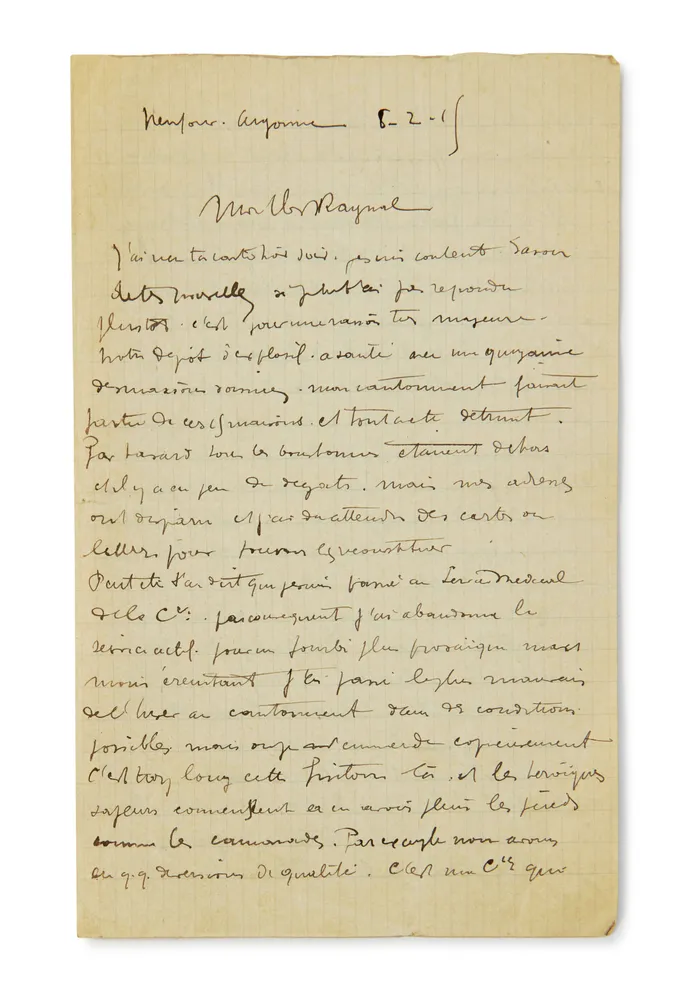 Neufour. Argonne 8-2-15
Mon cher Raynal
J'ai reçu ta carte hier soir. je suis content d'avoir
de tes nouvelles si je ne t'ai pas répondu
plus tôt. c'est pour une raison très majeure.
notre dépôt d'explosif. a sauté avec une quinzaine
de maisons voisines. mon cantonnement faisant
partie de ces 15 maisons. et tout a été détruit.
Par hasard tous les bonshommes étaient dehors
et il y a eu peu de dégats. mais mes adresses
ont disparu et j'ai du attendre des cartes ou
lettres pour pouvoir les reconstituer
Peut être t'ai dit que je suis passé au Service médical
de la Cie. par conséquent j'ai abandonné le
service actif. pour un fourbi plus prosaïque mais
moins éreintant j'ai passé le plus mauvais
de l'hiver au cantonnement dans des conditions
possibles mais on s' emmerde copieusement
C'est trop long cette histoire là. et les héroïques
sapeurs commencent à en avoir plein les pieds
comme les camarades. Par exemple nous avons
eu q.q. diversions de qualité. C'est une Cie qui